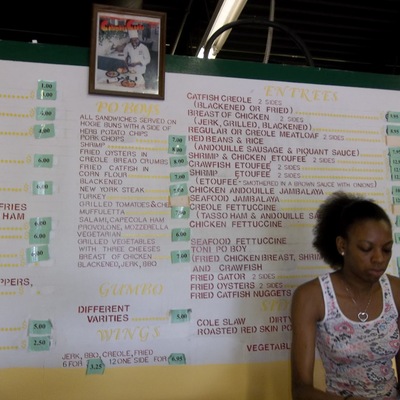 1.00
1.00
4.00
4.00
6.00
6.00
FRIES
HAM
PPERS,
5.00
2.50
PO BOYS
ALL SANDWICHES SERVED ON
HOGIE BUNS WITH A SIDE OF
HERB POTATO CHIPS
PORK CHOPS
SHRIMP
FRIED OYSTERS IN
CREOLE BREAD CRUMBS
FRIED CATFISH IN
CORN FLOUR
BLACKENED
NEW YORK STEAK
TURKEY
GRILLED TOMATOES
MUFFULETTA
SALAMI, CAPECOLA HAM
PROVOLONE, MOZZERELLA
VEGETARIAN
GRILLED VEGETABLES
WITH THREE CHEESES
BREAST OF CHICKEN
BLACKENED, JERK, BBQ
GUMBO
DIFFERENT
VARITIES 5.00
WINGS
JERK, BBQ, CREOLE, FRIED
6 FOR 3.25 12 ONE SIDE FOR 6.95
ENTREES
CATFISH CREOLE 2 SIDES
(BLACKENED OR FRIED)
BREAST OF CHICKEN
(JERK, GRILLED, BLACKENED)
REGULAR OR CREOLE MEATLOAF 2 SIDES
RED BEANS & RICE
(ANDOUILLE SAUSAGE & PIQUANT SAUCE)
SHRIMP & CHICKEN ETOUFEE 2 SIDES
CRAWFISH ETOUFEE 2 SIDES
SHRIMP ETOUFEE 2 SIDES
(ETOUFEE-SMOTHERED IN A BROWN SAUCE WITH ONIONS)
CHICKEN ANDOUILLE JAMBALAYA
SEAFOOD JAMBALAYA
CREOLE FETTUCCINE
(TASSO HAM & ANDOUILLE
CHICKEN FETTUCCINE
SEAFOOD FETTUCCINE
TONI PO BOY
(FRIED CHICKEN BREAST, SHRIM
AND CRAWFISH
FRIED GATOR 2 SIDES
FRIED OYSTERS 2 SIDES
FRIED CATFISH NUGGETS
COLE SLAW DIRTY
ROASTED RED SKIN PO
VEGETABL